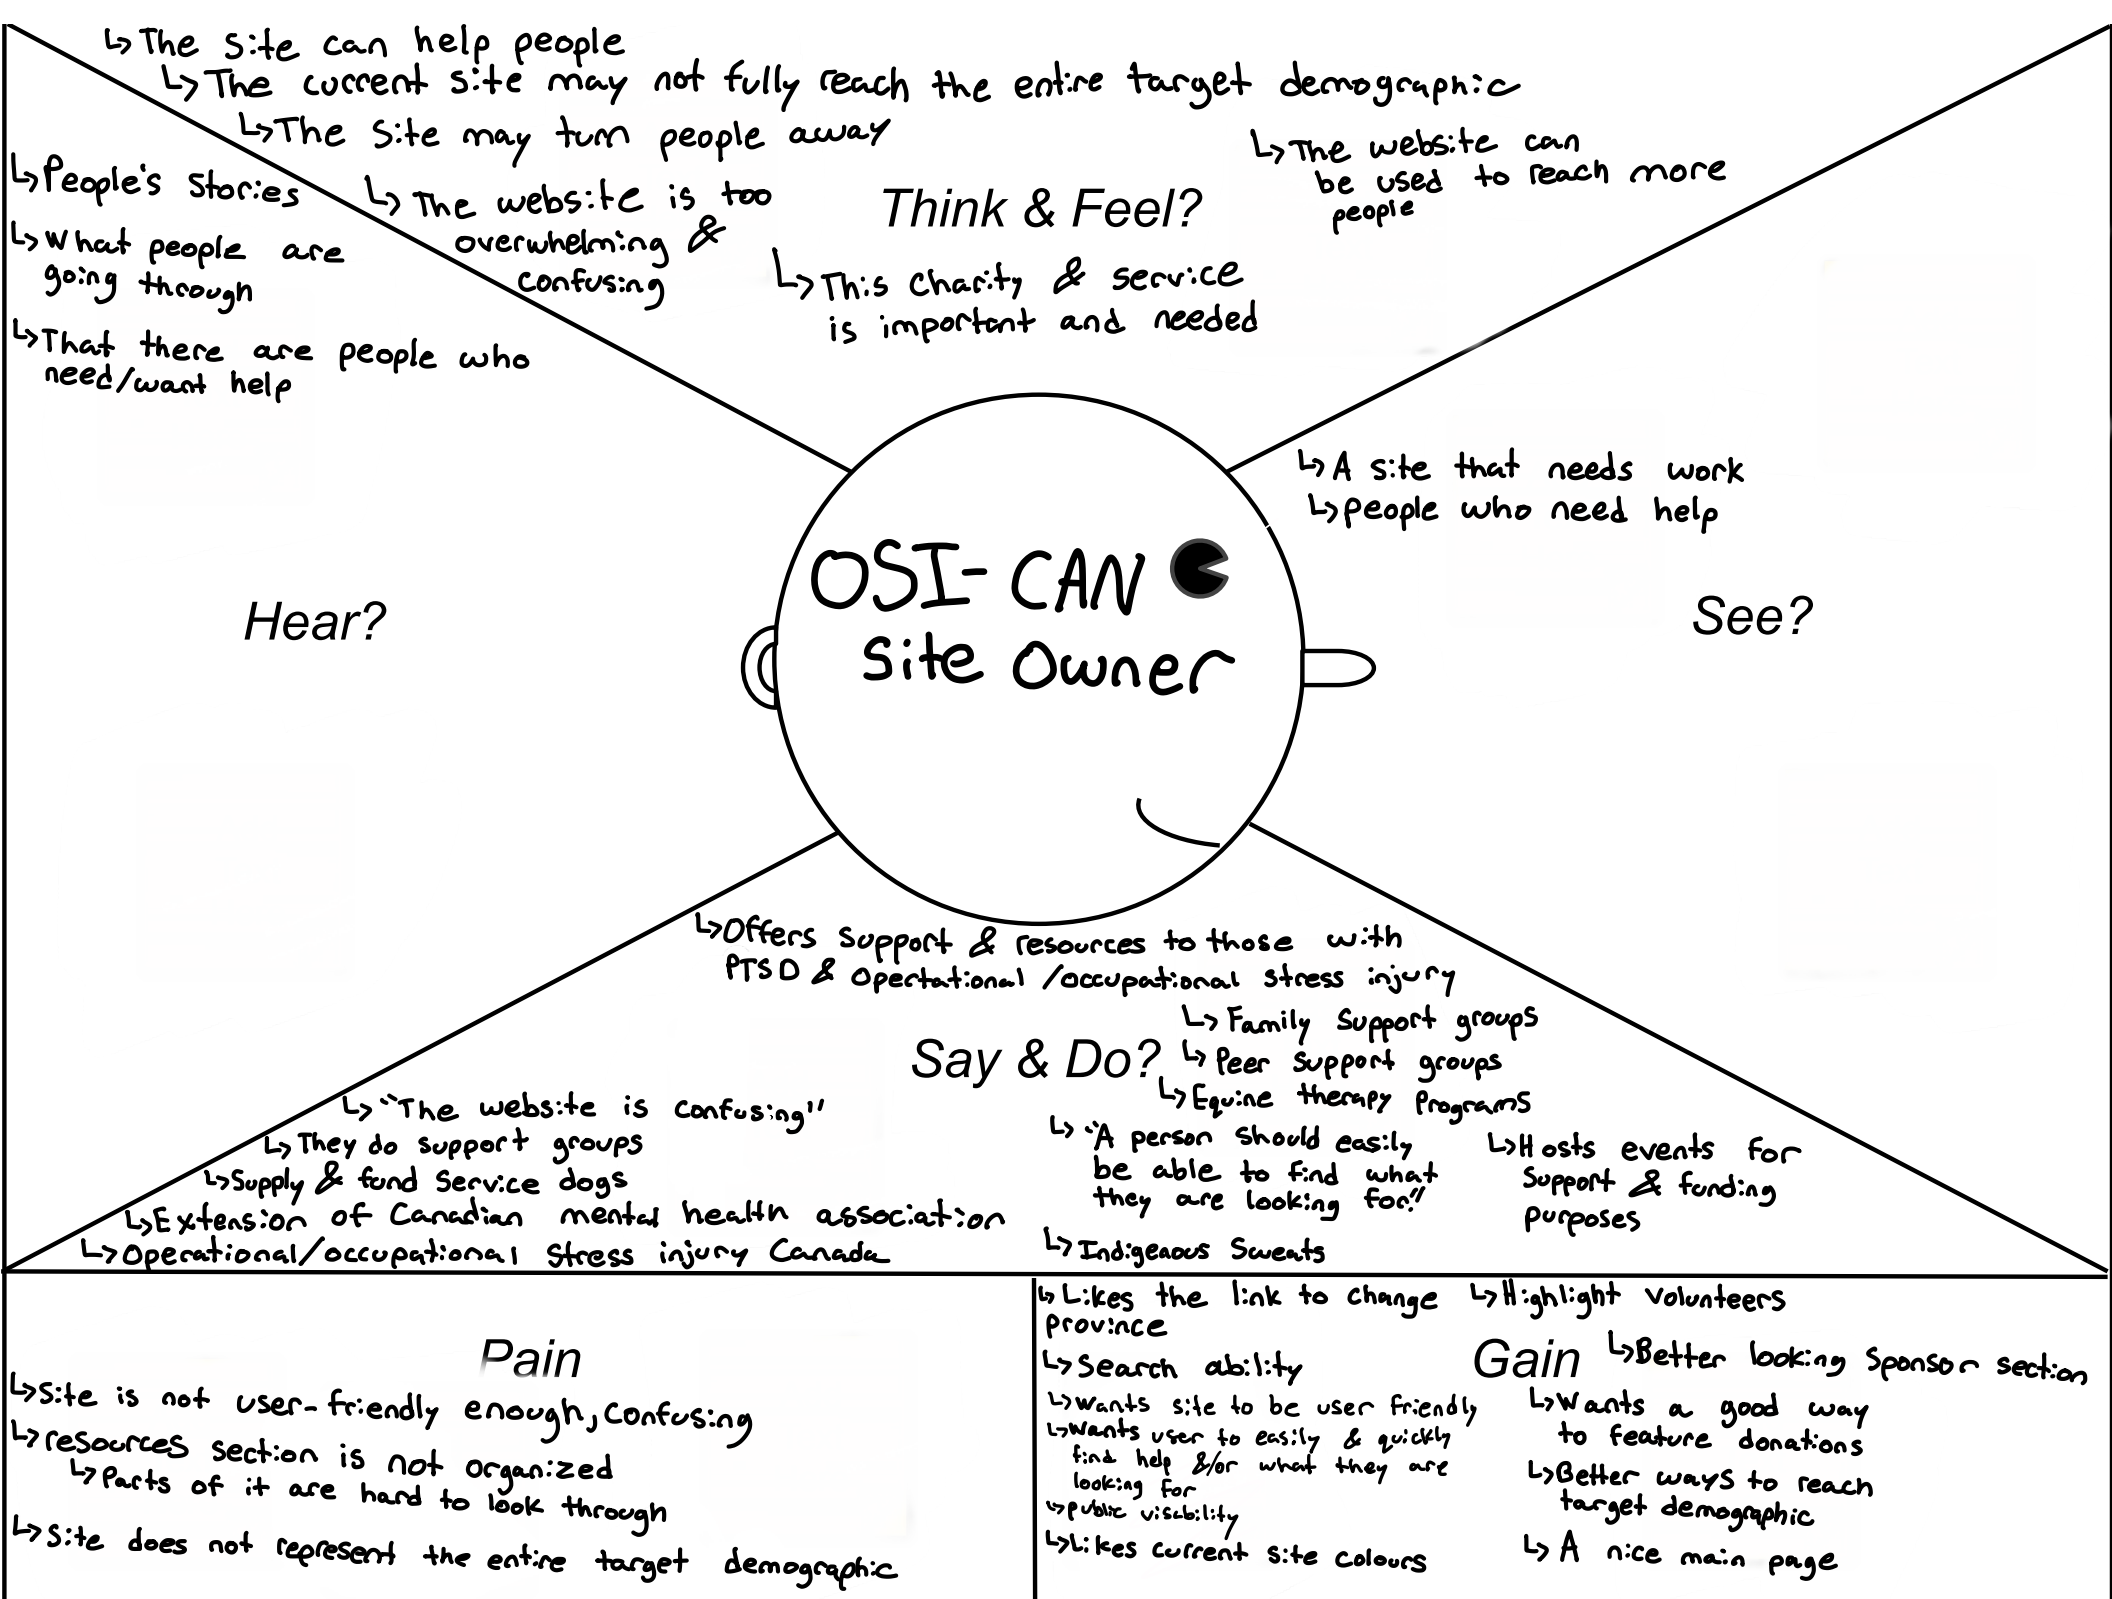 ↳ The site can help people
↳ The current site may not fully reach the entire target demographic
↳ The site may turn people away
↳ The website is too
overwhelming &
confusing
Think & Feel?
↳ This charity & service
is important and needed
↳ The website can
be used to reach more
people
↳ People's stories
↳ What people are
going through
↳ That there are people who
need/want help
Hear?
OSI-CAN
Site Owner
↳ A site that needs work
↳ people who need help
See?
↳ Offers support & resources to those with
PTSD & Opertational/occupational stress injury
↳ Family support groups
↳ Peer support groups
↳ Equine therapy programs
Say & Do?
↳ "The website is confusing"
↳ They do support groups
↳ Supply & fund service dogs
↳ Extension of Canadian mental health association
↳ Operational/occupational stress injury Canada
↳ "A person should easily
be able to find what
they are looking for."
↳ Indigenous Sweats
↳ Hosts events for
support & funding
purposes
Pain
↳ Site is not user-friendly enough, confusing
↳ resources section is not organized
↳ Parts of it are hard to look through
↳ Site does not represent the entire target demographic
Gain
↳ Likes the link to change
province
↳ Search ability
↳ Wants site to be user friendly
↳ Wants user to easily & quickly
find help &/or what they are
looking for
↳ public visability
↳ Likes current site colours
↳ Highlight volunteers
↳ Better looking sponsor section
↳ Wants a good way
to feature donations
↳ Better ways to reach
target demographic
↳ A nice main page